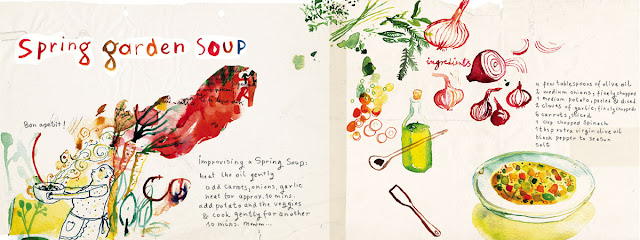 Spring garden SOUP
Bon apetit!
Improvising a Spring Soup:
heat the oil gently
add carots, onions, garlic
heat for approx. 10 mins.
add potato and the veggies
& cook gently for another
10 mins. mmm...
ingredients
a few tablespoons of olive oil
2 medium onions, finely chopped
1 medium potato, peeled & diced
2 cloves of garlic, finely chopped
6 carrots, sliced
1 cup chopped spinach
1 tbsp extra virgin olive oil
black pepper to season
salt